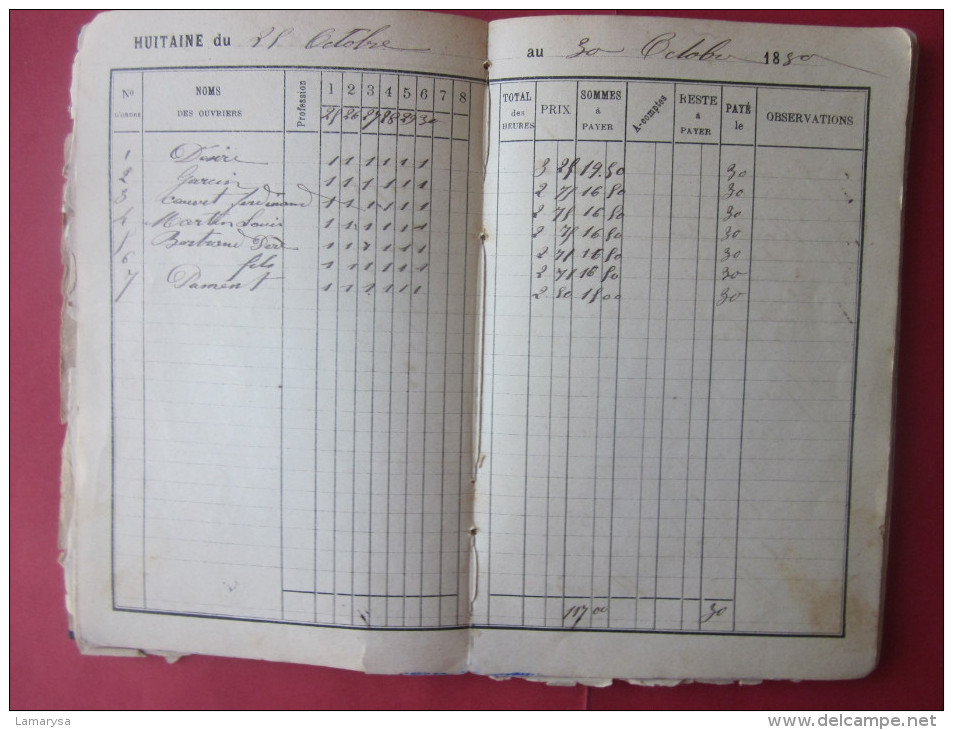 HUITAINE du 25 Octobre au 30 Octobre 1880
No D'ORDRE NOMS DES OUVRIERS Profession 1 2 3 4 5 6 7 8 TOTAL des HEURES PRIX SOMMES à PAYER A-comptes RESTE à PAYER PAYÉ le OBSERVATIONS
25 26 27 28 29 30
1 Désiré 1 1 1 1 1 1 3 25 19 50 30
2 Garcin 1 1 1 1 1 1 2 75 16 50 30
3 Cauvet ferdinand 1 1 1 1 1 1 2 75 16 50 30
4 Martin Louis 1 1 1 1 1 1 2 75 16 50 30
5 Bertrand Père 1 1 1 1 1 1 2 75 16 50 30
6 fils 1 1 1 1 1 1 2 75 16 50 30
7 Dament 1 1 1 1 1 1 2 50 15 00 30
117 00 30
Lamarysa
www.delcampe.net